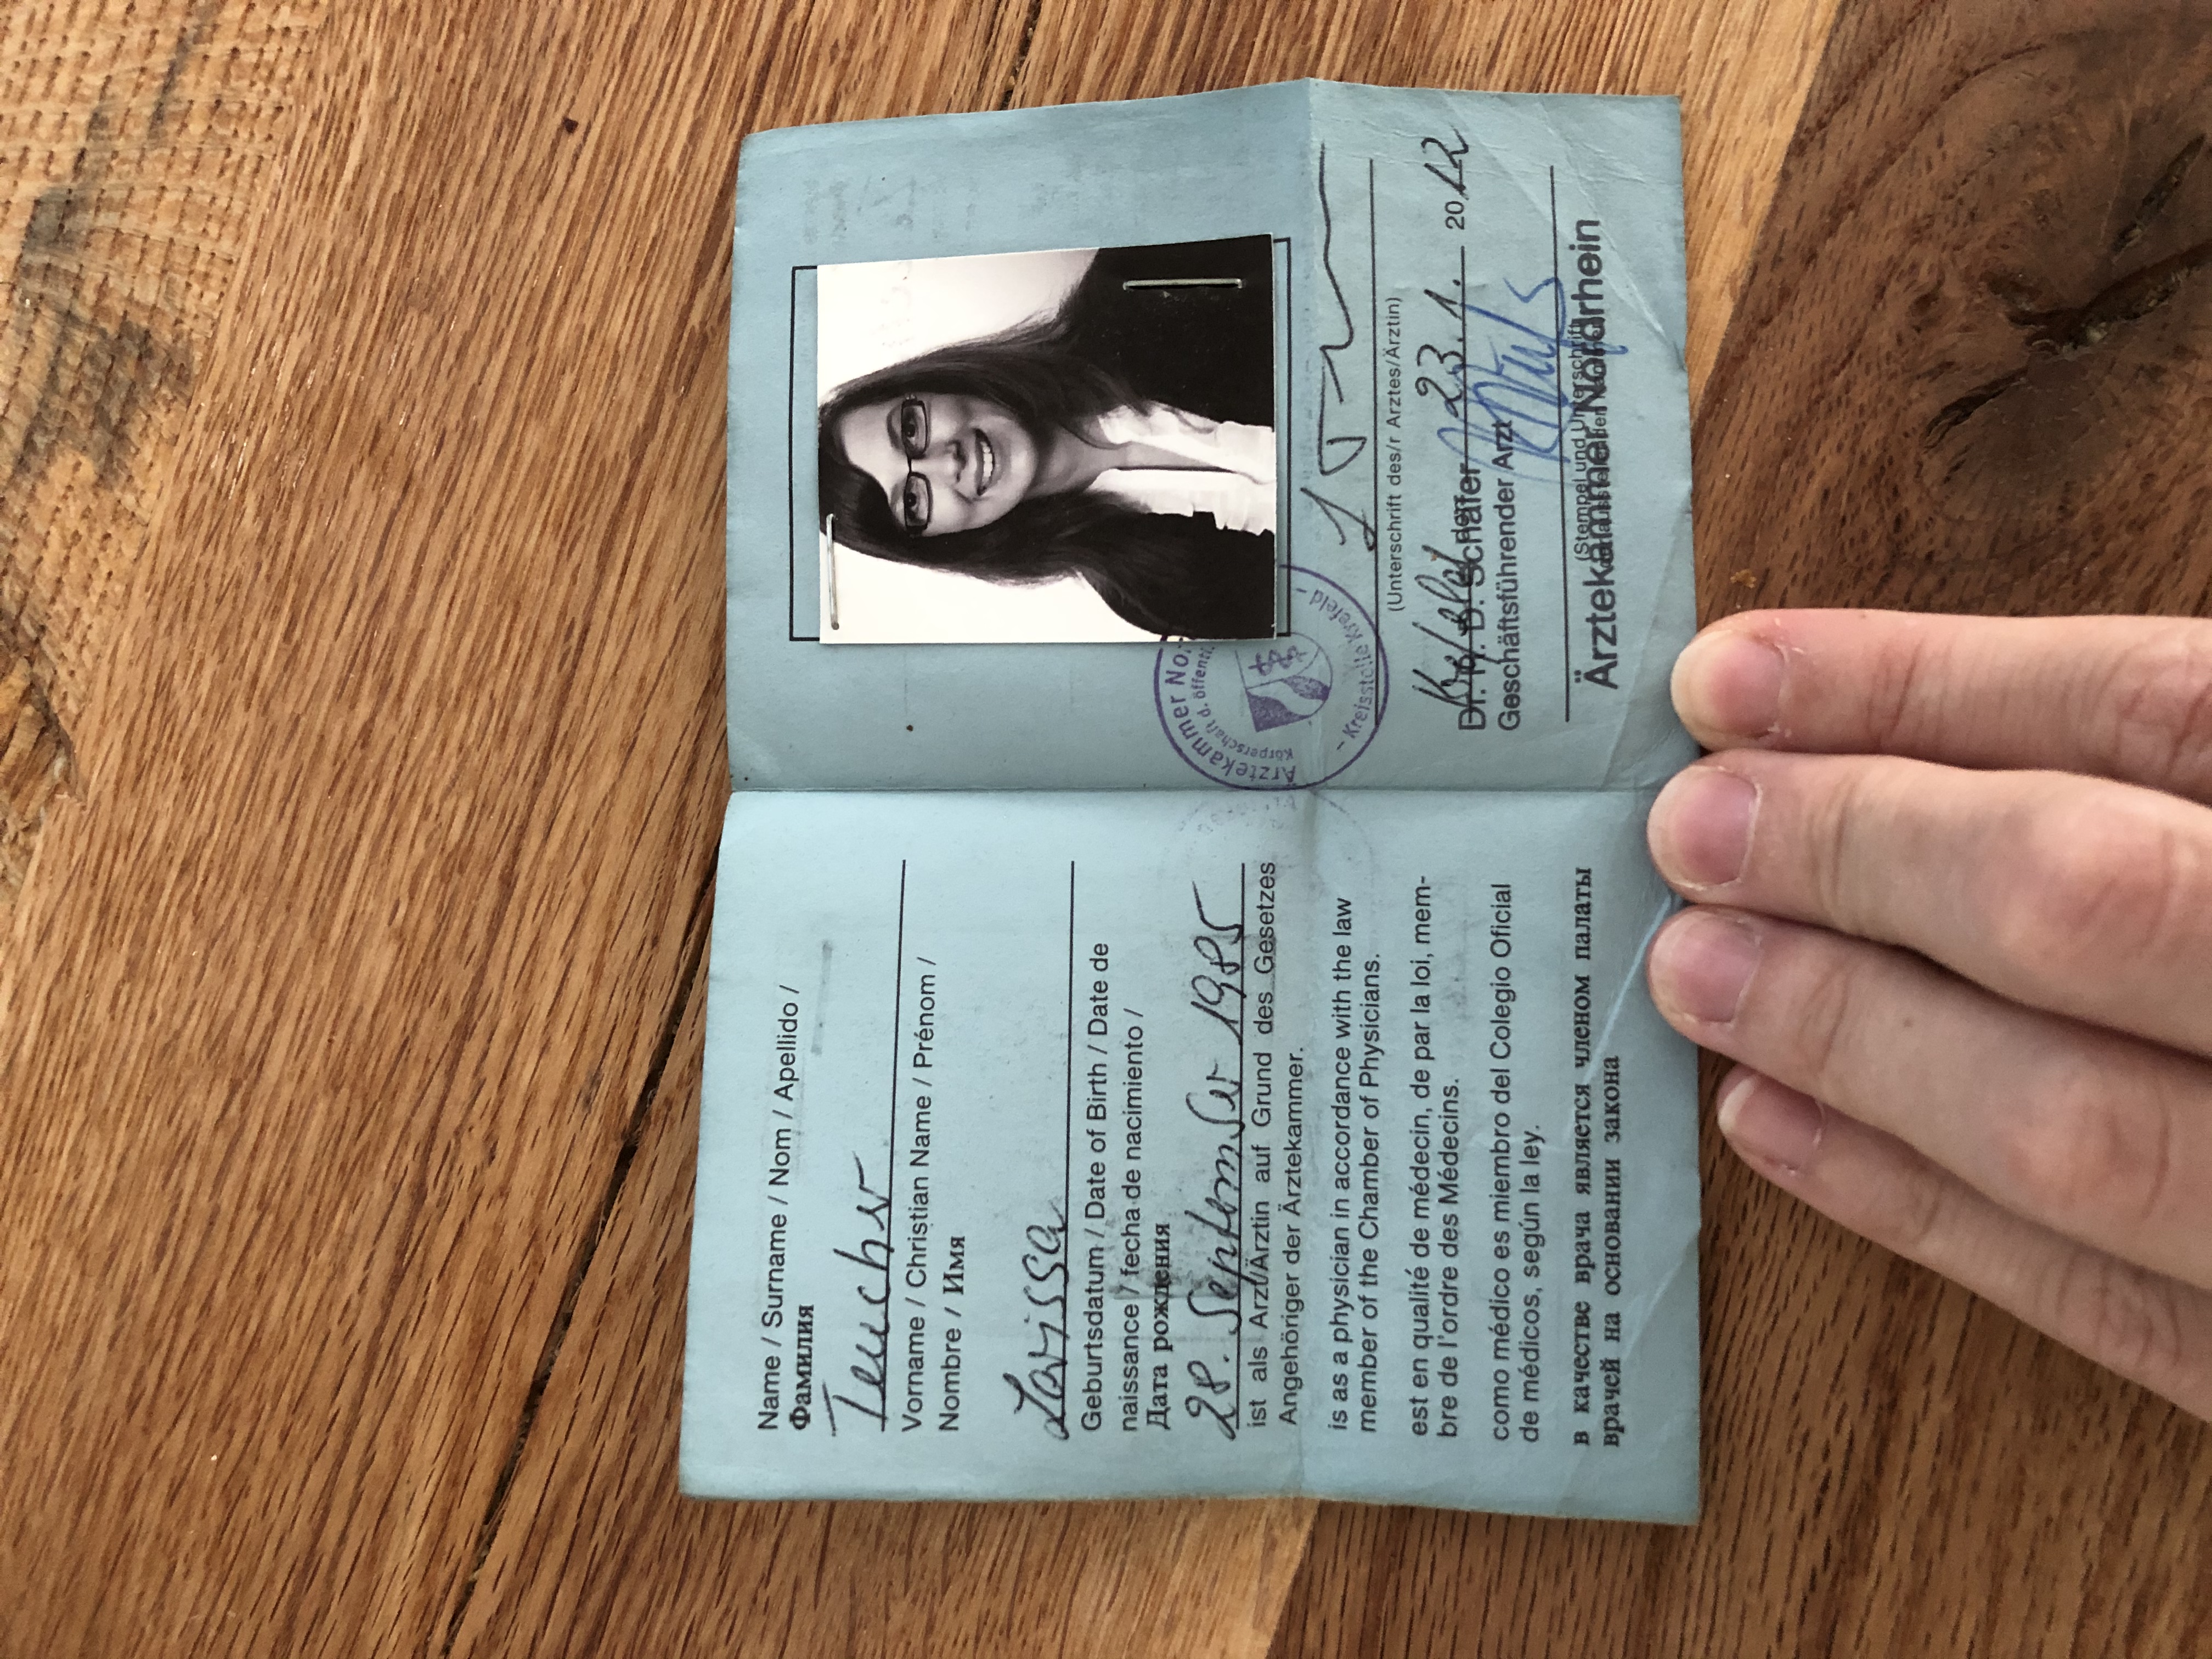 Name / Surname / Nom / Apellido /
Фамилия
Teucher
Vorname / Christian Name / Prénom /
Nombre / Имя
Larissa
Geburtsdatum / Date of Birth / Date de
naissance / fecha de nacimiento /
Дата рождения
28. September 1985
ist als Arzt/Ärztin auf Grund des Gesetzes
Angehöriger der Ärztekammer.
is as a physician in accordance with the law
member of the Chamber of Physicians.
est en qualité de médecin, de par la loi, mem-
bre de l'ordre des Médecins.
como médico es miembro del Colegio Oficial
de médicos, según la ley.
в качестве врача является членом палаты
врачей на основании закона
Ärztekammer No
Körperschaft d. öffentl.
- Kreisstelle Krefeld -
(Unterschrift des/r Arztes/Ärztin)
Krefeld den 23.1. 2012
Dr. D. Schäfer
Geschäftsführender Arzt
(Stempel und Unterschrift
der ausstellenden Kammer)
Ärztekammer Nordrhein